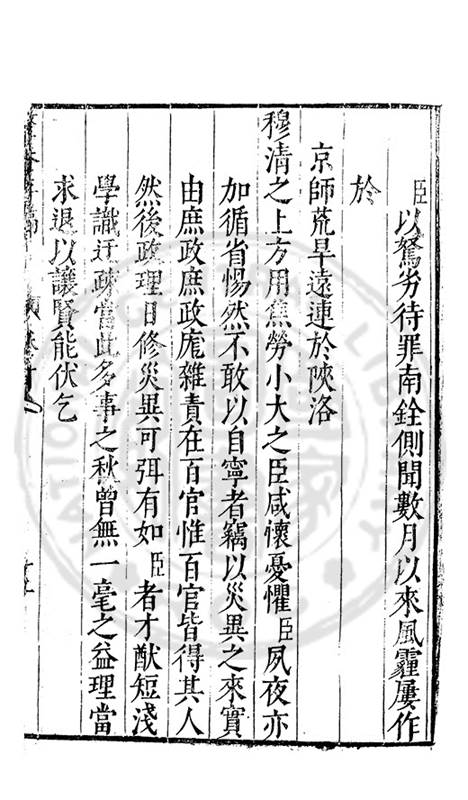 臣以駑劣待罪南銓側聞數月以來風霾屢作
於
京師荒旱遠連於陝洛
穆清之上方用焦勞小大之臣咸懷憂懼臣夙夜亦
加循省惕然不敢以自寧者竊以災異之來實
由庶政庶政龐雜責在百官惟百官皆得其人
然後政理日修災異可弭有如臣者才猷短淺
學識迂疎當此多事之秋曾無一毫之益理當
求退以讓賢能伏乞